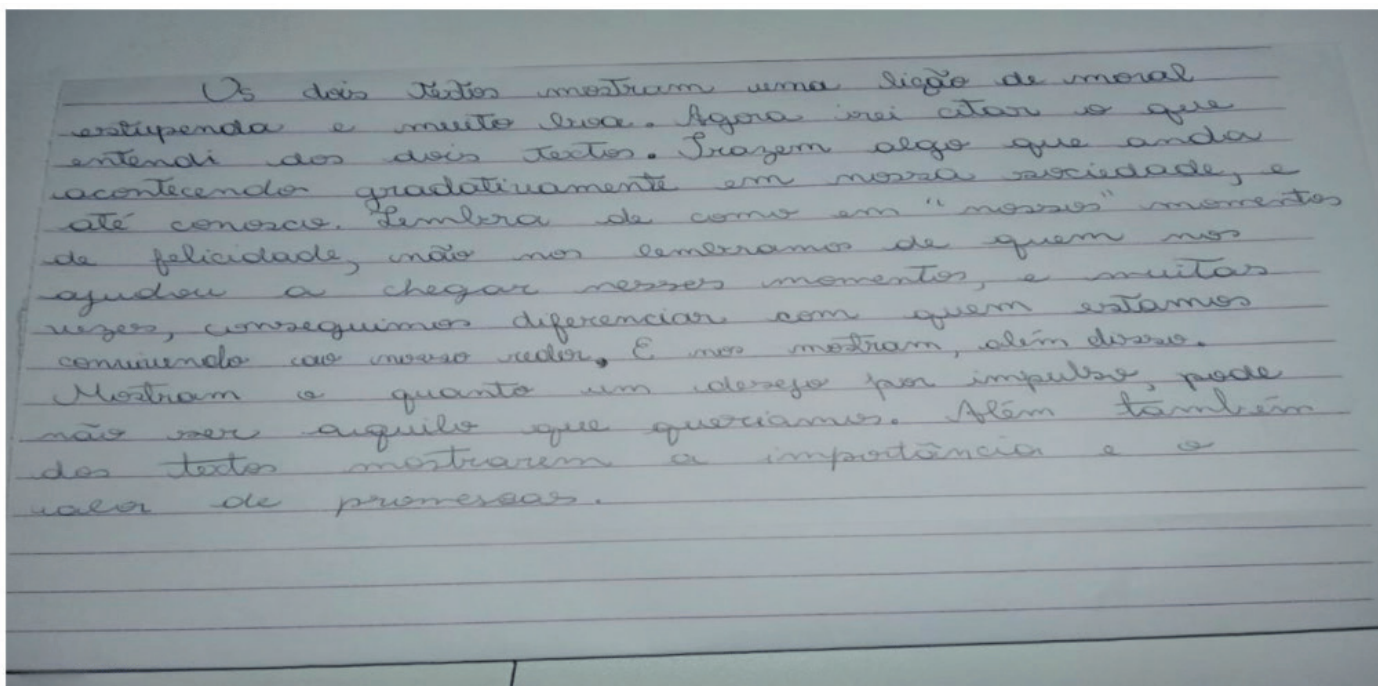 Os dois textos mostram uma lição de moral
estupenda e muito boa. Agora irei citar o que
entendi dos dois textos. Trazem algo que anda
acontecendo gradativamente em nossa sociedade, e
até conosco. Lembra de como em "nossos" momentos
de felicidade, não nos lembramos de quem nos
ajudou a chegar nesses momentos, e muitas
vezes, conseguimos diferenciar com quem estamos
convivendo ao nosso redor. E nos mostram, além disso.
Mostram o quanto um desejo por impulso, pode
não ser aquilo que queriamos. Além também
dos textos mostrarem a importância e o
valor de promessas.